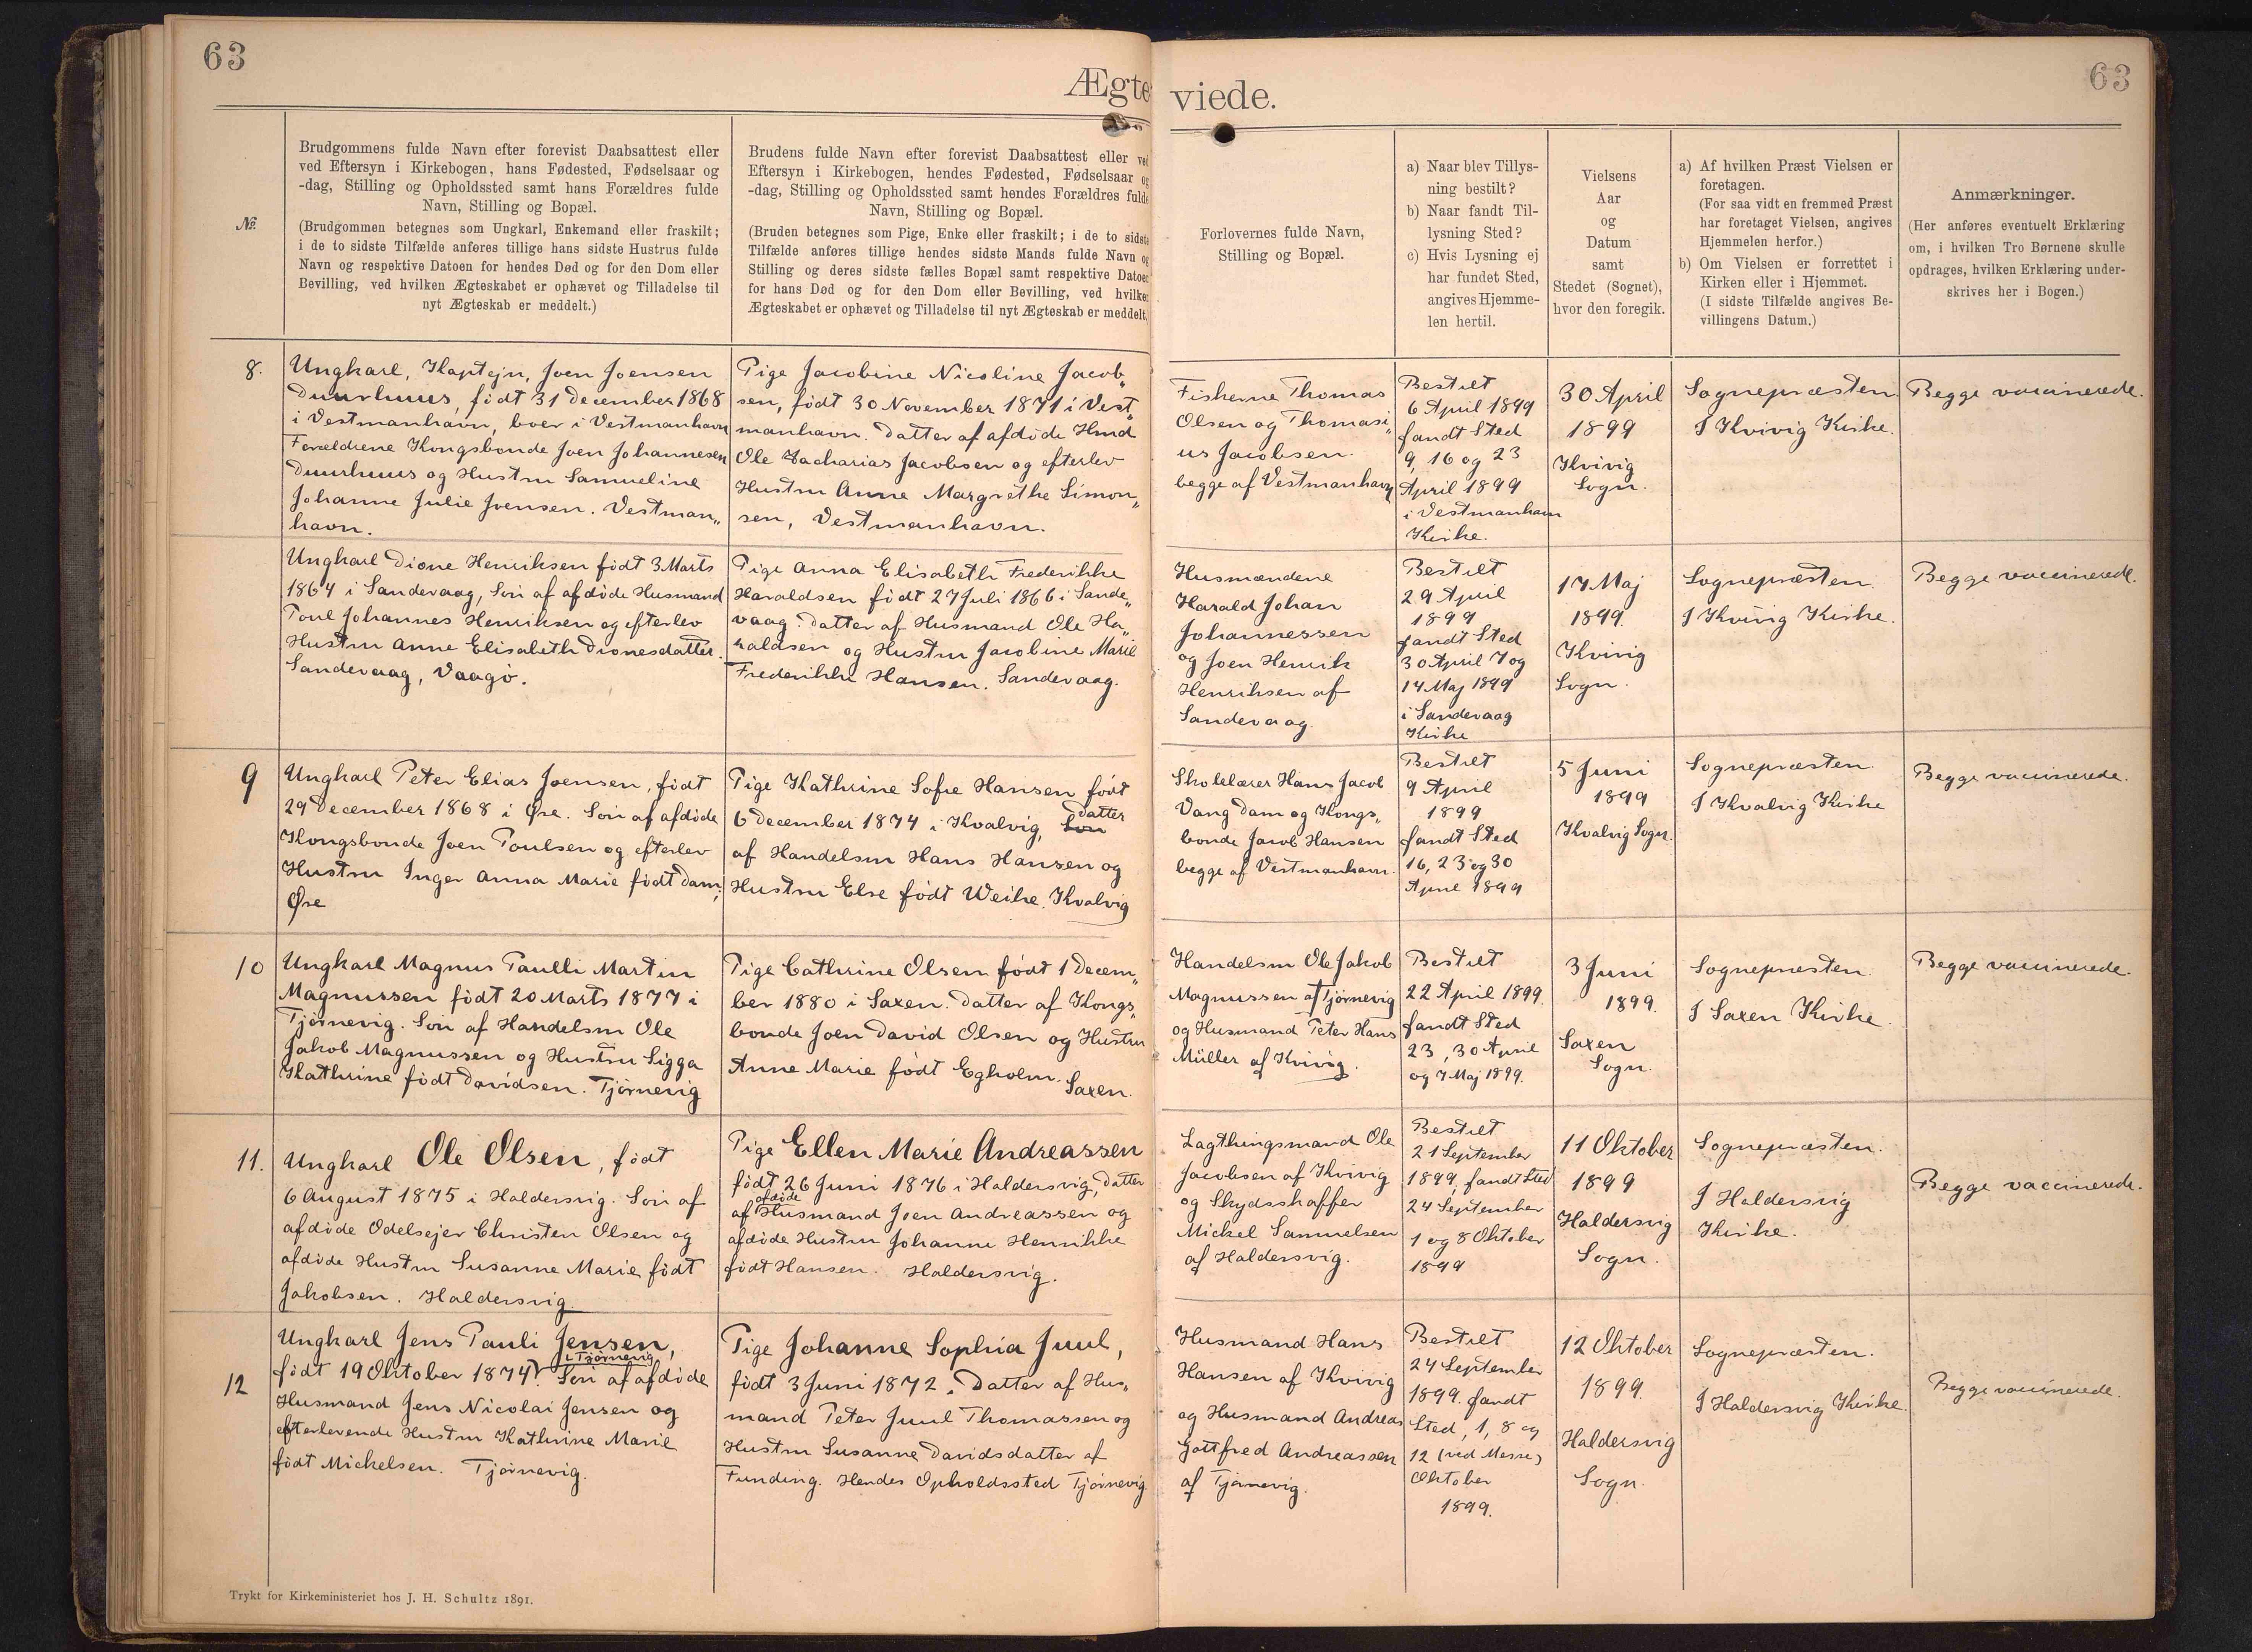 63
63
Ægte
viede.
№.
Brudgommens fulde Navn efter forevist Daabsattest eller
ved Eftersyn i Kirkebogen, hans Fødested, Fødselsaar og
-dag, Stilling og Opholdssted samt hans Forældres fulde
Navn, Stilling og Bopæl.
(Brudgommen betegnes som Ungkarl, Enkemand eller fraskilt;
i de to sidste Tilfælde anføres tillige hans sidste Hustrus fulde
Navn og respektive Datoen for hendes Død og for den Dom eller
Bevilling, ved hvilken Ægteskabet er ophævet og Tilladelse til
nyt Ægteskab er meddelt.)
Brudens fulde Navn efter forevist Daabsattest eller ved
Eftersyn i Kirkebogen, hendes Fødested, Fødselsaar og
-dag, Stilling og Opholdssted samt hendes Forældres fulde
Navn, Stilling og Bopæl.
(Bruden betegnes som Pige, Enke eller fraskilt; i de to sidste
Tilfælde anføres tillige hendes sidste Mands fulde Navn og
Stilling og deres sidste fælles Bopæl samt respektive Datoen
for hans Død og for den Dom eller Bevilling, ved hvilken
Ægteskabet er ophævet og Tilladelse til nyt Ægteskab er meddelt.
Forlovernes fulde Navn,
Stilling og Bopæl.
a) Naar blev Tillys-
ning bestilt?
b) Naar fandt Til-
lysning Sted?
c) Hvis Lysning ej
har fundet Sted,
angives Hjemme-
len hertil.
Vielsens
Aar
og
Datum
samt
Stedet (Sognet),
hvor den foregik.
a) Af hvilken Præst Vielsen er
foretagen.
(For saa vidt en fremmed Præst
har foretaget Vielsen, angives
Hjemmelen herfor.)
b) Om Vielsen er forrettet i
Kirken eller i Hjemmet.
(I sidste Tilfælde angives Be-
villingens Datum.)
Anmærkninger.
(Her anføres eventuelt Erklæring
om, i hvilken Tro Børnene skulle
opdrages, hvilken Erklæring under-
skrives her i Bogen.)
8.
Ungkarl, Kaptejn, Joen Joensen
Duurhuus, født 31 December 1868
i Vestmanhavn, boer i Vestmanhavn
Forældrene Kongsbonde Joen Johannesen
Duurhuus og Hustru Samueline
Johanne Julie Joensen. Vestman„
havn.
Pige Jacobine Nicoline Jacob„
sen, født 30 November 1871 i Vest„
manhavn. Datter af afdøde Hmd
Ole Zacharias Jacobsen og efterlev
Hustru Anne Margrethe Simon„
sen, Vestmanhavn.
Fiskerne Thomas
Olsen og Thomasi„
us Jacobsen.
begge af Vestmanhavn
Bestilt
6 April 1899
fandt Sted
9, 16 og 23
April 1899
i Vestmanhavn
Kirke.
30 April
1899
Kvivig
Sogn.
Sognepræsten.
I Kvivig Kirke.
Begge vaccinerede.
Ungkarl Dione Henriksen født 3 Marts
1864 i Sandevaag, Søn af afdøde Husmand
Poul Johannes Henriksen og efterlev
Hustru Anne Elisabeth Dionesdatter.
Sandevaag, Vaagø.
Pige Anna Elisabeth Frederikke
Haraldsen født 27 Juli 1866 i Sande„
vaag. Datter af Husmand Ole Ha„
raldsen og Hustru Jacobine Marie
Frederikke Hansen. Sandevaag.
Husmændene
Harald Johan
Johannessen
og Joen Henrik
Henriksen af
Sandevaag
Bestilt
29 April
1899
fandt Sted
30 April 7 og
14 Maj 1899
i Sandevaag
Kirke
17 Maj
1899.
Kvivig
Sogn.
Sognepræsten.
I Kvivig Kirke.
Begge vaccinerede.
9
Ungkarl Peter Elias Joensen, født
29 December 1868 i Øre. Søn af afdøde
Kongsbonde Joen Poulsen og efterlev
Hustru Inger Anna Marie født Dam,
Øre
Pige Kathrine Sofie Hansen født
6 December 1874 i Kvalvig, Søn Datter
af Handelsm Hans Hansen og
Hustru Else født Weihe. Kvalvig
Skolelærer Hans Jacob
Vang Dam og Kongs„
bonde Jacob Hansen
begge af Vestmanhavn.
Bestilt
9 April
1899
fandt Sted
16, 23 og 30
April 1899
5 Juni
1899
Kvalvig Sogn.
Sognepræsten.
I Kvalvig Kirke
Begge vaccinerede.
10
Ungkarl Magnus Paulli Martin
Magnussen født 20 Marts 1877 i
Tjørnevig. Søn af Handelsm Ole
Jakob Magnussen og Hustru Sigga
Kathrine født Davidsen. Tjørnevig
Pige Cathrine Olsen født 1 Decem„
ber 1880 i Saxen. Datter af Kongs„
bonde Joen David Olsen og Hustru
Anne Marie født Egholm. Saxen.
Handelsm Ole Jakob
Magnussen af Tjørnevig
og Husmand Peter Hans
Müller af Kvivig.
Bestilt
22 April 1899.
fandt Sted
23, 30 April
og 7 Maj 1899.
3 Juni
1899.
Saxen
Sogn.
Sognepræsten.
I Saxen Kirke.
Begge vaccinerede.
11.
Ungkarl Ole Olsen, født
6 August 1875 i Haldersvig. Søn af
afdøde Odelsejer Christen Olsen og
afdøde Hustru Susanne Marie født
Jakobsen. Haldersvig
Pige Ellen Marie Andreassen
født 26 Juni 1876 i Haldersvig, Datter
af afdøde Husmand Joen Andreassen og
afdøde Hustru Johanne Henrikke
født Hansen. Haldersvig.
Lagthingsmand Ole
Jacobsen af Kvivig
og Skydsskaffer
Mickel Samuelsen
af Haldersvig.
Bestilt
21 September
1899. fandt Sted
24 September
1 og 8 Oktober
1899
11 Oktober
1899
Haldersvig
Sogn.
Sognepræsten.
I Haldersvig
Kirke.
Begge vaccinerede.
12
Ungkarl Jens Pauli Jensen,
født 19 Oktober 1874 i Tjørnevig. Søn af afdøde
Husmand Jens Nicolai Jensen og
efterlevende Hustru Kathrine Marie
født Mickelsen. Tjørnevig.
Pige Johanne Sophia Juul,
født 3 Juni 1872. Datter af Hus„
mand Peter Juul Thomassen og
Hustru Susanne Davidsdatter af
Funding. Hendes Opholdssted Tjørnevig
Husmand Hans
Hansen af Kvivig
og Husmand Andreas
Gottfred Andreassen
af Tjørnevig.
Bestilt
24 September
1899. fandt
Sted, 1, 8 og
12 (ved Messe)
Oktober
1899.
12 Oktober
1899.
Haldersvig
Sogn.
Sognepræsten.
I Haldersvig Kirke.
Begge vaccinerede.
Trykt for Kirkeministeriet hos J. H. Schultz 1891.